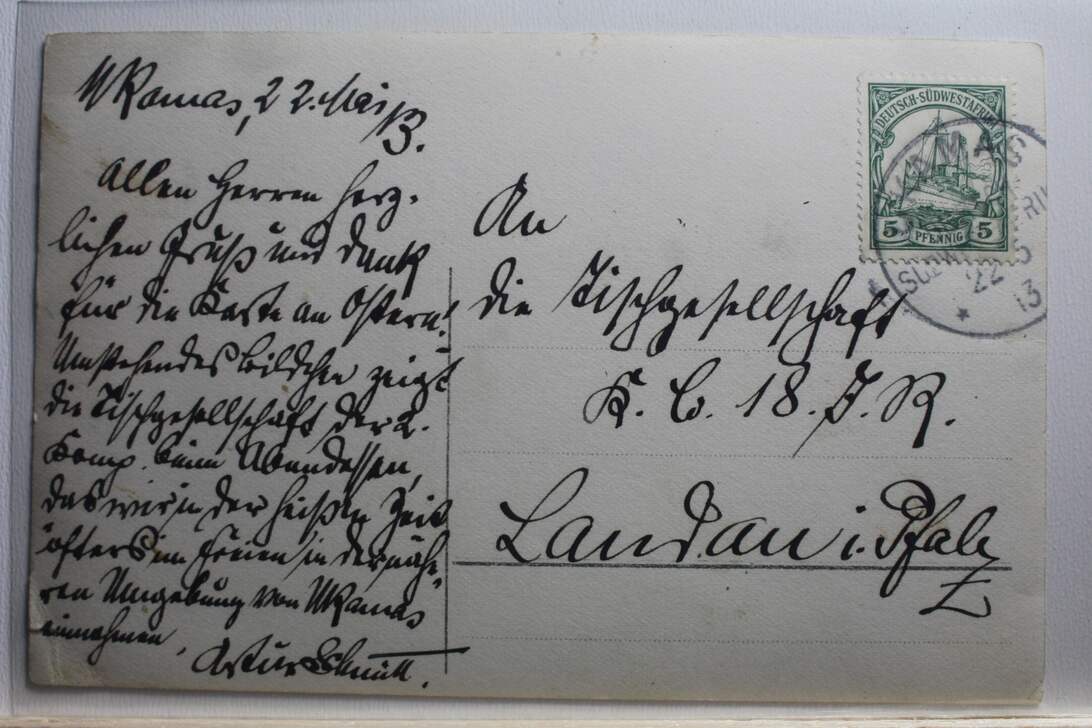 Ukamas, 22. Mai 13.
Allen Herren herz-
lichen Gruß und Dank
für die Karte an Ostern!
Umstehendes Bildchen zeigt
die Tischgesellschaft der 2.
Komp. beim Abendessen,
das wir in der heißen Zeit
öfters im Freien in der näh-
ren Umgebung von Ukamas
einnahmen.
Artur Schmitt.
An
die Tischgesellschaft
K. B. 18. J. R.
Landau i. Pfalz
DEUTSCH-SÜDWESTAFRIKA
5 PFENNIG 5
UKAMAS
22 5
13